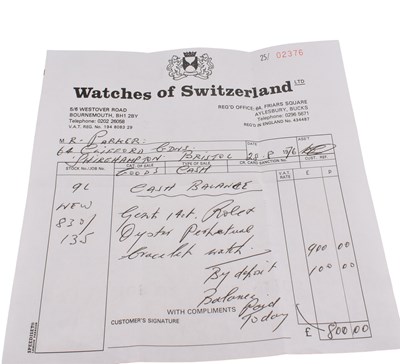 25/ 02376
Watches of Switzerland LTD
5/6 WESTOVER ROAD
BOURNEMOUTH, BH1 2BY
Telephone: 0202 26058
V.A.T. REG. No 194 8583 29
REG'D OFFICE: 8A, FRIARS SQUARE
AYLESBURY, BUCKS
Telephone: 0296 5671
REG'D IN ENGLAND No. 434487
MR. PARKER.
64 CLIFFORD GDNS,
SHIREHAMPTON BRISTOL 20.8 1976
DATE OF SALE TYPE OF SALE CR. CARD SANCTION No. CUST. REF.
STOCK No./JOB No. GOODS CASH V.A.T. RATE £ P
9L CASH BALANCE
NEW Gents 14ct. Rolex
830/ Oyster Perpetual
135 bracelet watch. 900 00
By deposit 100 00
Balance
WITH COMPLIMENTS Paid
CUSTOMER'S SIGNATURE Today £ 800 00